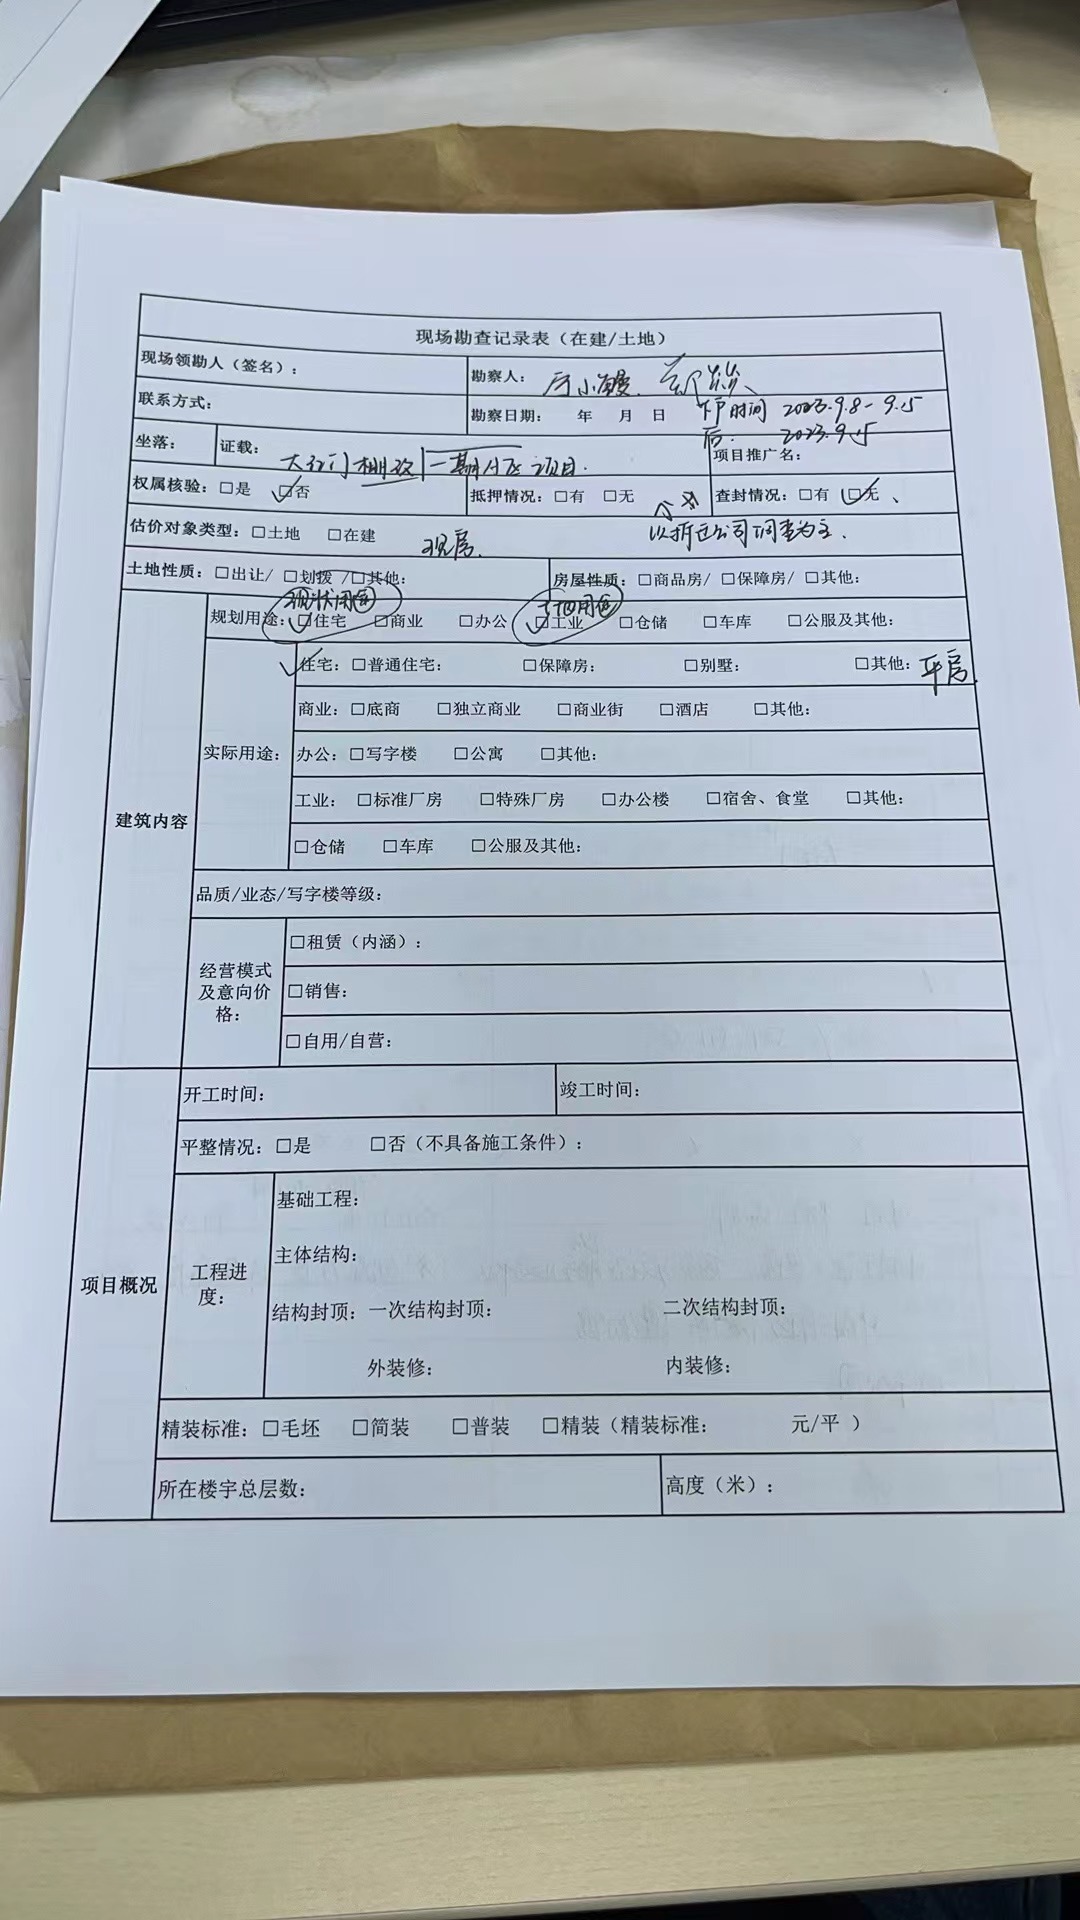 现场勘查记录表（在建/土地）
现场领勘人（签名）：
勘察人：
联系方式：
勘察日期： 年 月 日 下户时间 2023.9.8-9.15
后. 2023.9.15
坐落： 证载： 大红门棚改一期A区项目. 项目推广名：
权属核验：□是 □否 抵押情况：□有 □无 查封情况：□有 □无、
估价对象类型：□土地 □在建 现房. 以拆迁公司调查为主.
土地性质：□出让/ □划拨 /□其他： 房屋性质：□商品房/ □保障房/ □其他：
现状用途 土地用途
规划用途：□住宅 □商业 □办公 □工业 □仓储 □车库 □公服及其他：
建筑内容
实际用途：
住宅：□普通住宅： □保障房： □别墅： □其他：平房.
商业：□底商 □独立商业 □商业街 □酒店 □其他：
办公：□写字楼 □公寓 □其他：
工业： □标准厂房 □特殊厂房 □办公楼 □宿舍、食堂 □其他：
□仓储 □车库 □公服及其他：
品质/业态/写字楼等级：
经营模式
及意向价
格：
□租赁（内涵）：
□销售：
□自用/自营：
项目概况
开工时间： 竣工时间：
平整情况：□是 □否（不具备施工条件）：
工程进
度：
基础工程：
主体结构：
结构封顶：一次结构封顶： 二次结构封顶：
外装修： 内装修：
精装标准：□毛坯 □简装 □普装 □精装（精装标准： 元/平 ）
所在楼宇总层数： 高度（米）：